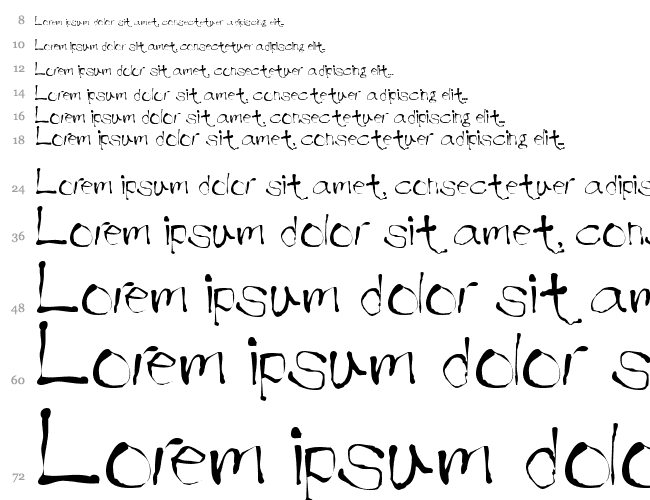 8 Lorem ipsum dolor sit amet, consectetuer adipiscing elit.
10 Lorem ipsum dolor sit amet, consectetuer adipiscing elit.
12 Lorem ipsum dolor sit amet, consectetuer adipiscing elit.
14 Lorem ipsum dolor sit amet, consectetuer adipiscing elit.
16 Lorem ipsum dolor sit amet, consectetuer adipiscing elit.
18 Lorem ipsum dolor sit amet, consectetuer adipiscing elit.
24 Lorem ipsum dolor sit amet, consectetuer adipis
36 Lorem ipsum dolor sit amet, con
48 Lorem ipsum dolor sit am
60 Lorem ipsum dolor s
72 Lorem ipsum dolo